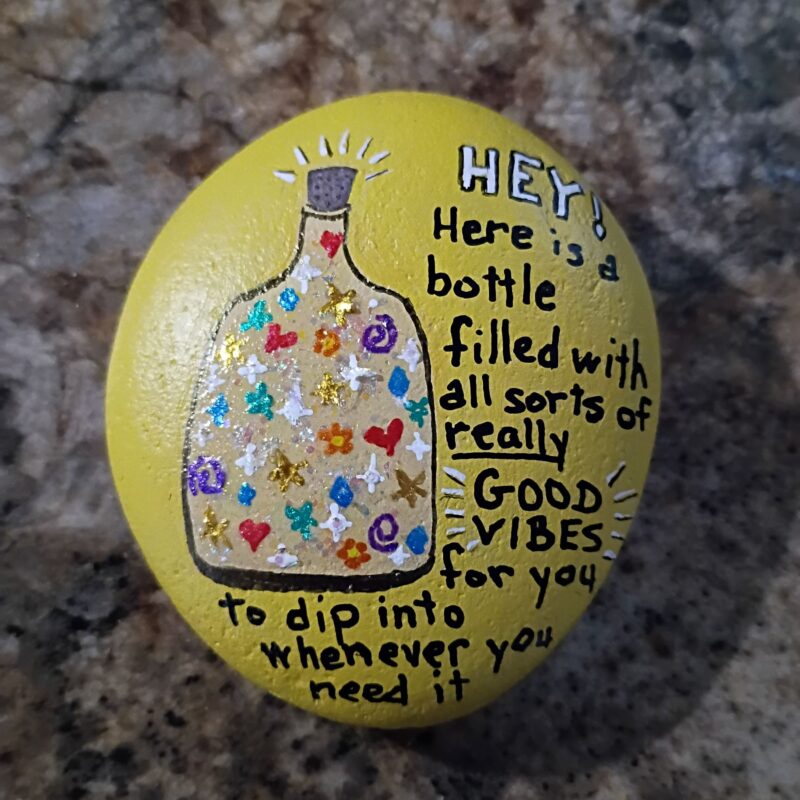 HEY!
Here is a
bottle
filled with
all sorts of
really
GOOD
VIBES
for you
to dip into
whenever you
need it